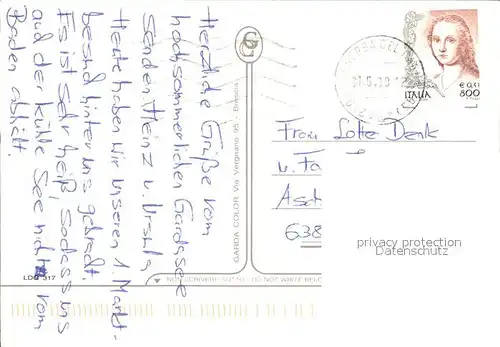 Herzliche Grüße vom
hochsommerlichen Gardasee
senden Heinz u. Ursula
Heute haben wir unseren 1. Markt-
besuch hinter uns gebracht.
Es ist sehr heiß, sodass uns
auch der kühle See nicht vom
Baden abhält.
GARDA COLOR Via Vergnano 95 - Brescia
LDG 317
NON SCRIVERE SOTTO - DO NOT WRITE BELOW
ITALIA
€ 0,41
800
Frau Lotte Denk
u. Fa
Asch
638
privacy protection
Datenschutz